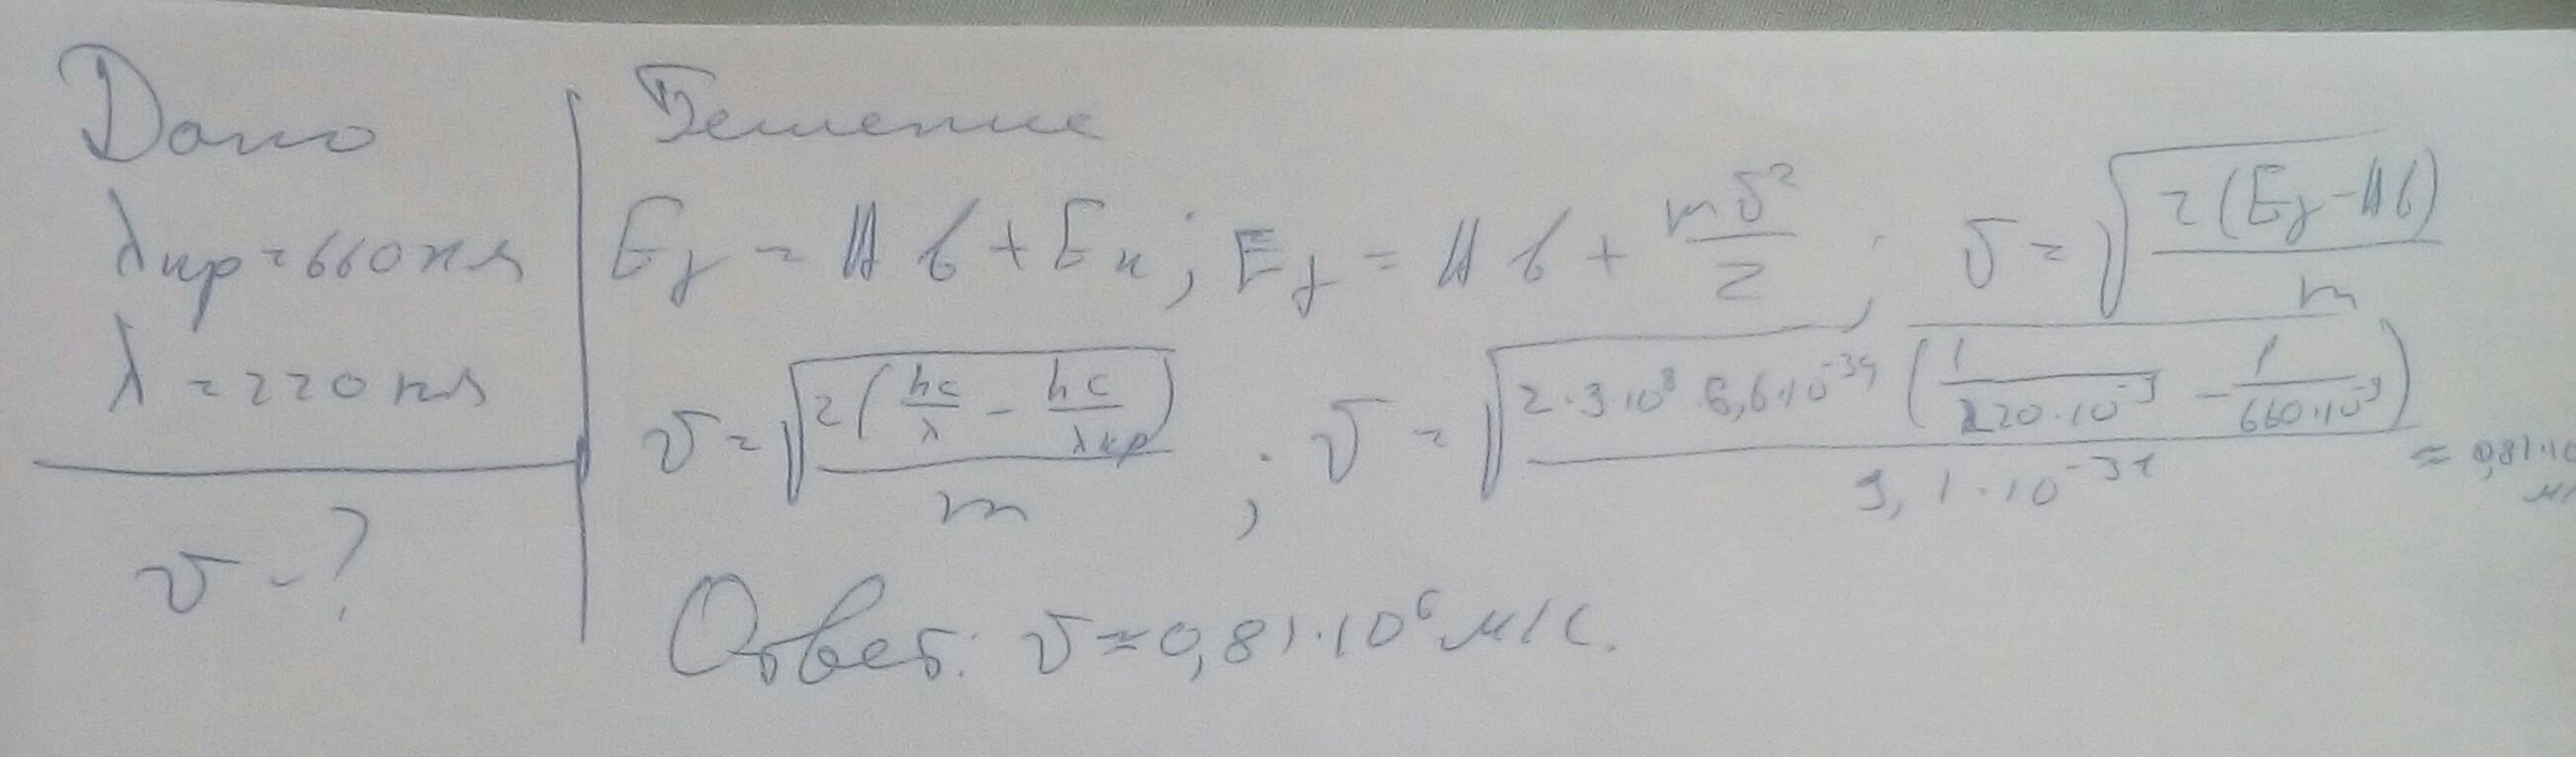 Дано
λкр = 660 нм
λ = 220 нм
υ - ?
Решение
Eγ = Aв + Eк ; Eγ = Aв + mυ²/2 ; υ = √(2(Eγ - Aв)/m)
υ = √(2(hc/λ - hc/λкр)/m) ; υ = √(2·3·10⁸·6,6·10⁻³⁴(1/(220·10⁻⁹) - 1/(660·10⁻⁹))/(9,1·10⁻³¹)) ≈ 0,81·10
м/
Ответ: υ ≈ 0,81·10⁶ м/с.